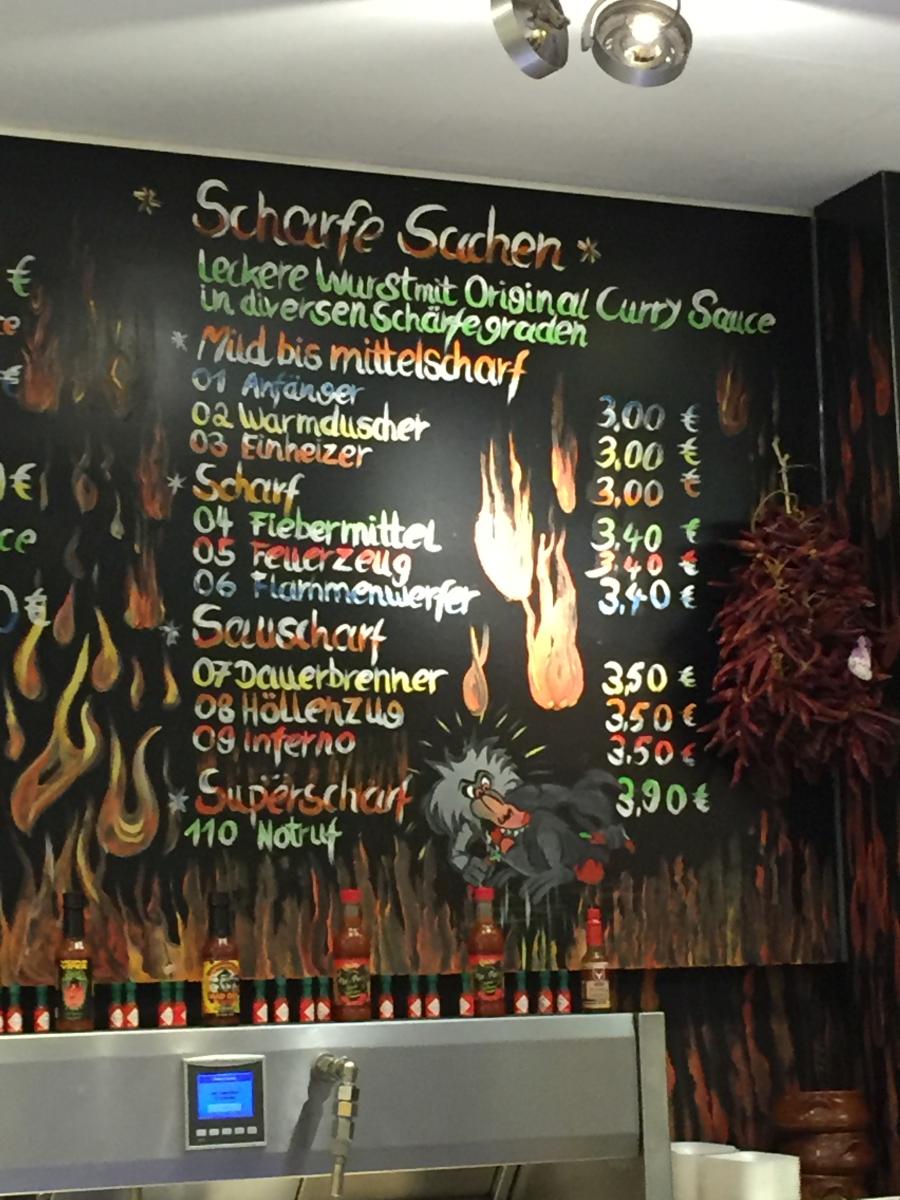 * Scharfe Sachen *
€
Leckere Wurst mit Original Curry Sauce
in diversen Schärfegraden
* Mild bis mittelscharf
€
01 Anfänger 3,00 €
02 Warmduscher 3,00 €
03 Einheizer 3,00 €
* Scharf
€
04 Fiebermittel 3,40 €
05 Feuerzeug 3.40 €
06 Flammenwerfer 3,40 €
€
* Sauscharf
07 Dauerbrenner 3,50 €
08 Höllenzug 3,50 €
09 Inferno 3.50 €
* Superscharf 3,90 €
110 Notruf